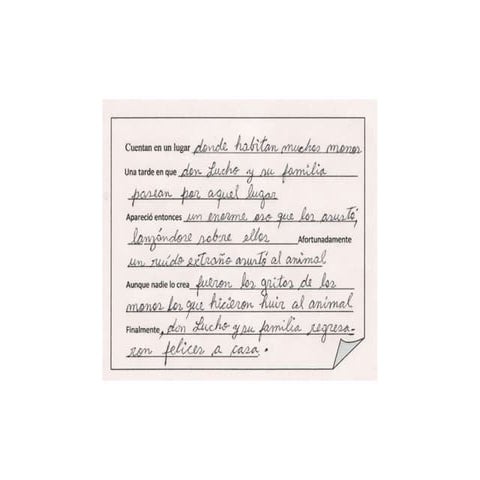 Cuentan en un lugar donde habitan muchos monos
Una tarde en que don Lucho y su familia
pasean por aquel lugar
Apareció entonces un enorme oso que los asustó,
lanzándose sobre ellos Afortunadamente
un ruído extraño asustó al animal
Aunque nadie lo crea fueron los gritos de los
monos los que hicieron huir al animal
Finalmente, don Lucho y su familia regresa-
ron felices a casa.